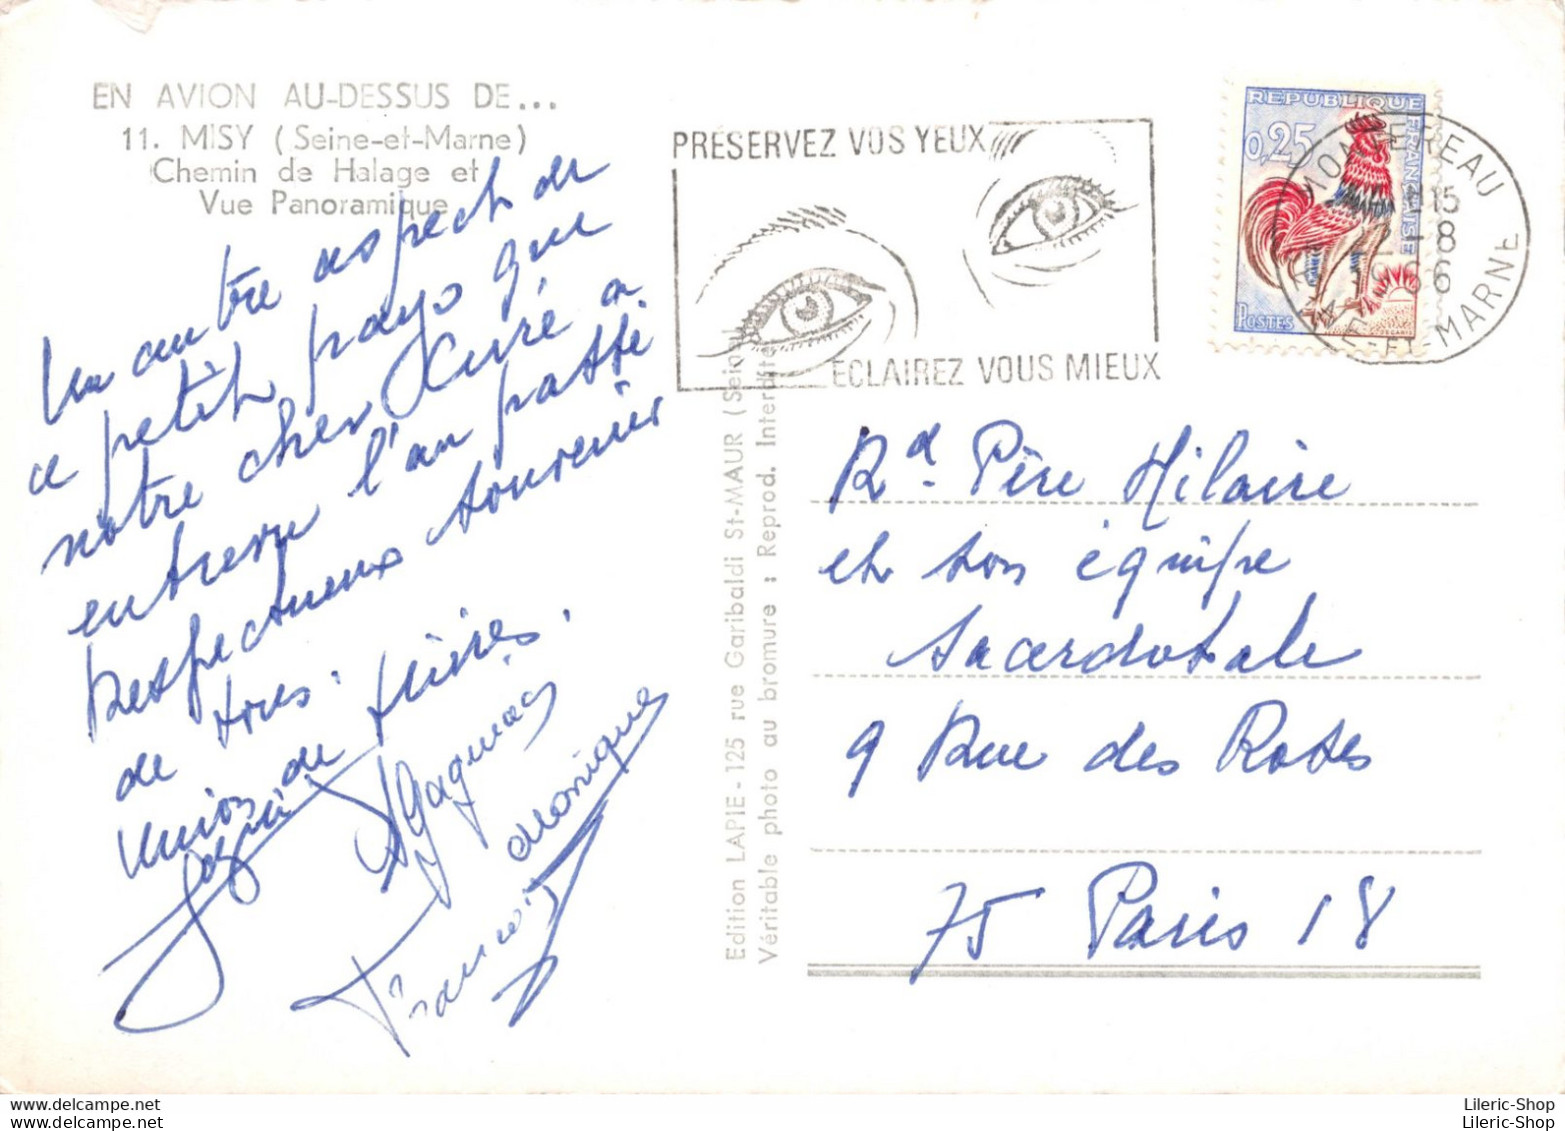 EN AVION AU-DESSUS DE...
11. MISY (Seine-et-Marne)
Chemin de Halage et
Vue Panoramique
Un autre aspect de
ce petit pays que
notre cher Curé a
entrevu l'an passé
Respectueux souvenir
de tous.
Union de prières.
Gagneac
Monique
François
Edition LAPIE - 125 rue Garibaldi St-MAUR (Seine)
Véritable photo au bromure : Reprod. Interdite
PRÉSERVEZ VOS YEUX
ECLAIREZ VOUS MIEUX
REPUBLIQUE FRANÇAISE
0,25
POSTES
DECARIS
MONTEREAU
15
2-8
1966
SEINE-ET-MARNE
Rd. Père Hilaire
et son équipe
sacerdotale
9 Rue des Roses
75 Paris 18
Lileric-Shop
Lileric-Shop
www.delcampe.net
www.delcampe.net